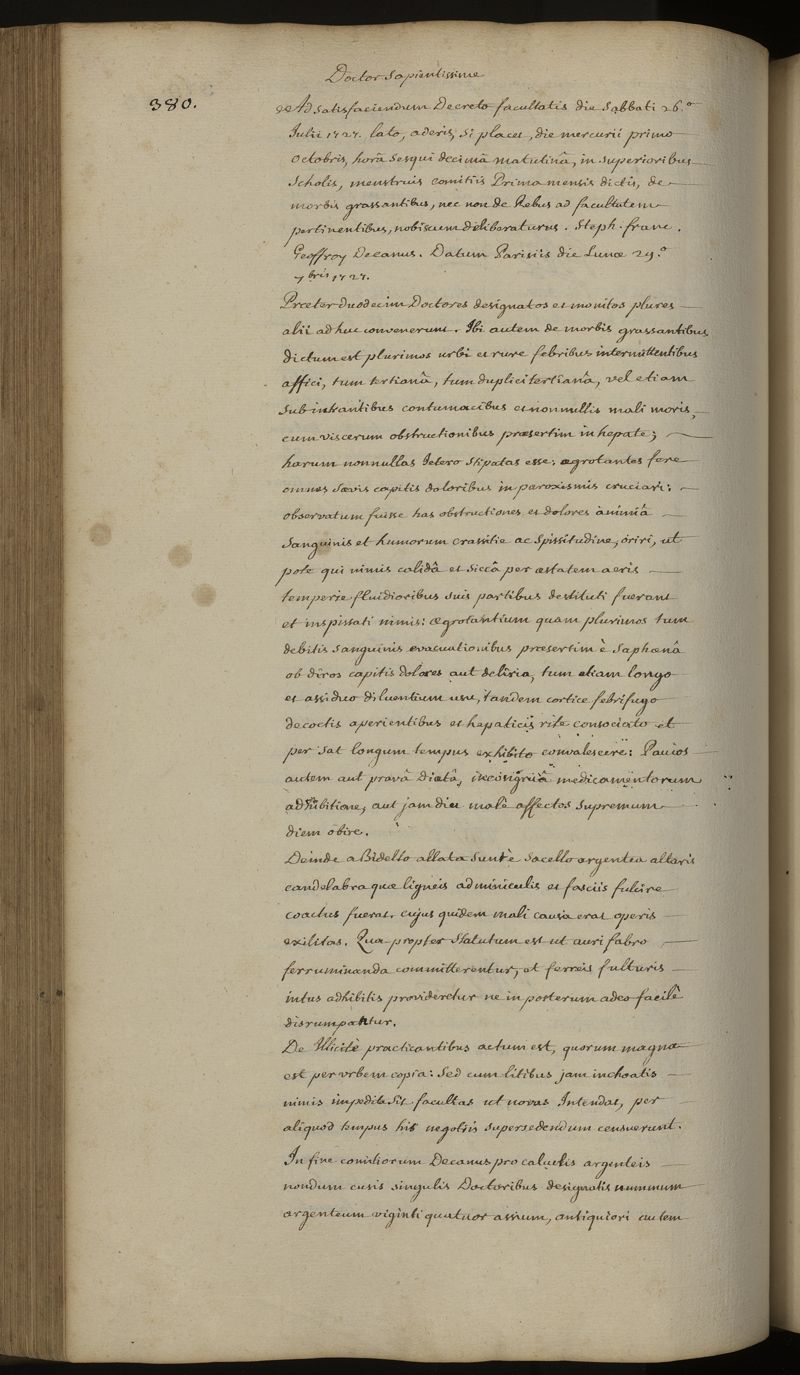 Doctor Sapientissime
380.
Ad satisfaciendum Decreto facultatis die Sabbati 26.º
Julii 1727. lato, aderis, si places, die mercurii primo
octobris, horâ sesqui decimâ matutinâ, in superioribus
Scholis, menstruis comitiis Prima mensis dictis, de
morbis grassantibus, nec non de Rebus ad facultatem
pertinentibus, nobiscum deliberaturus. Steph. franc.
Geoffroy Decanus. Datum Parisiis die Lunæ 29.º
7bris 1727.
Præter duodecim Doctores designatos et monitos plures
alii adhuc convenerunt. Ibi autem de morbis grassantibus
dictum est plurimos urbi et rure febribus intermittentibus
affici, tum tertianâ, tum duplici tertianâ, vel etiam
subintrantibus contumacibus et nonnullis mali moris,
cum viscerum obstructionibus præsertim in hepate;
harum nonnullas Ictero stipatas esse. ægrotantes fere
omnes sævis capitis doloribus in paroxismis cruciari:
observatum fuisse has obstructiones et dolores à nimiâ
sanguinis et humorum crassitie ac spissitudine, oriri, ut
pote qui nimis calidâ et siccâ per æstatem aeris
temperie fluidioribus suis partibus destituti fuerant
et inspissati nimis: ægrotantium quam plurimos tum
debitis sanguinis evacuationibus præsertim è saphænâ
ob diros capitis dolores aut deliria, tum etiam longo
et assiduo diluentium usu, tandem cortice febrifugo
decoctis aperientibus et hepaticis rite consociato et
per sat longum tempus exhibito convalescere: Paucos
autem aut pravâ Diætâ, incongruâ medicamentorum
adhibitione, aut jam diu malè affectos supremum
diem obire.
Deinde a Bidello allata sunt è sacello argentea altaris
candelabra quæ ligneis adminiculis et fasciis fulcire
coactus fuerat. cujus quidem mali causa erat operis
exilitas. Qua propter statutum est ut auri fabro
ferruminanda committerentur, et ferreis fulturis
intus adhibitis provideretur ne in posterum adeo facilè
disrumpantur.
De Illicitè practicantibus actum est, quorum magna
est per urbem copia: sed cum litibus jam inchoatis
nimis impedita sit facultas ut novas Intendat, per
aliquod tempus his negotiis supersedendum censuerunt.
In fine comitiorum Decanus pro calculis argenteis
nondum cusis singulis Doctoribus designatis nummum
argenteum viginti quatuor assium, antiquiori autem